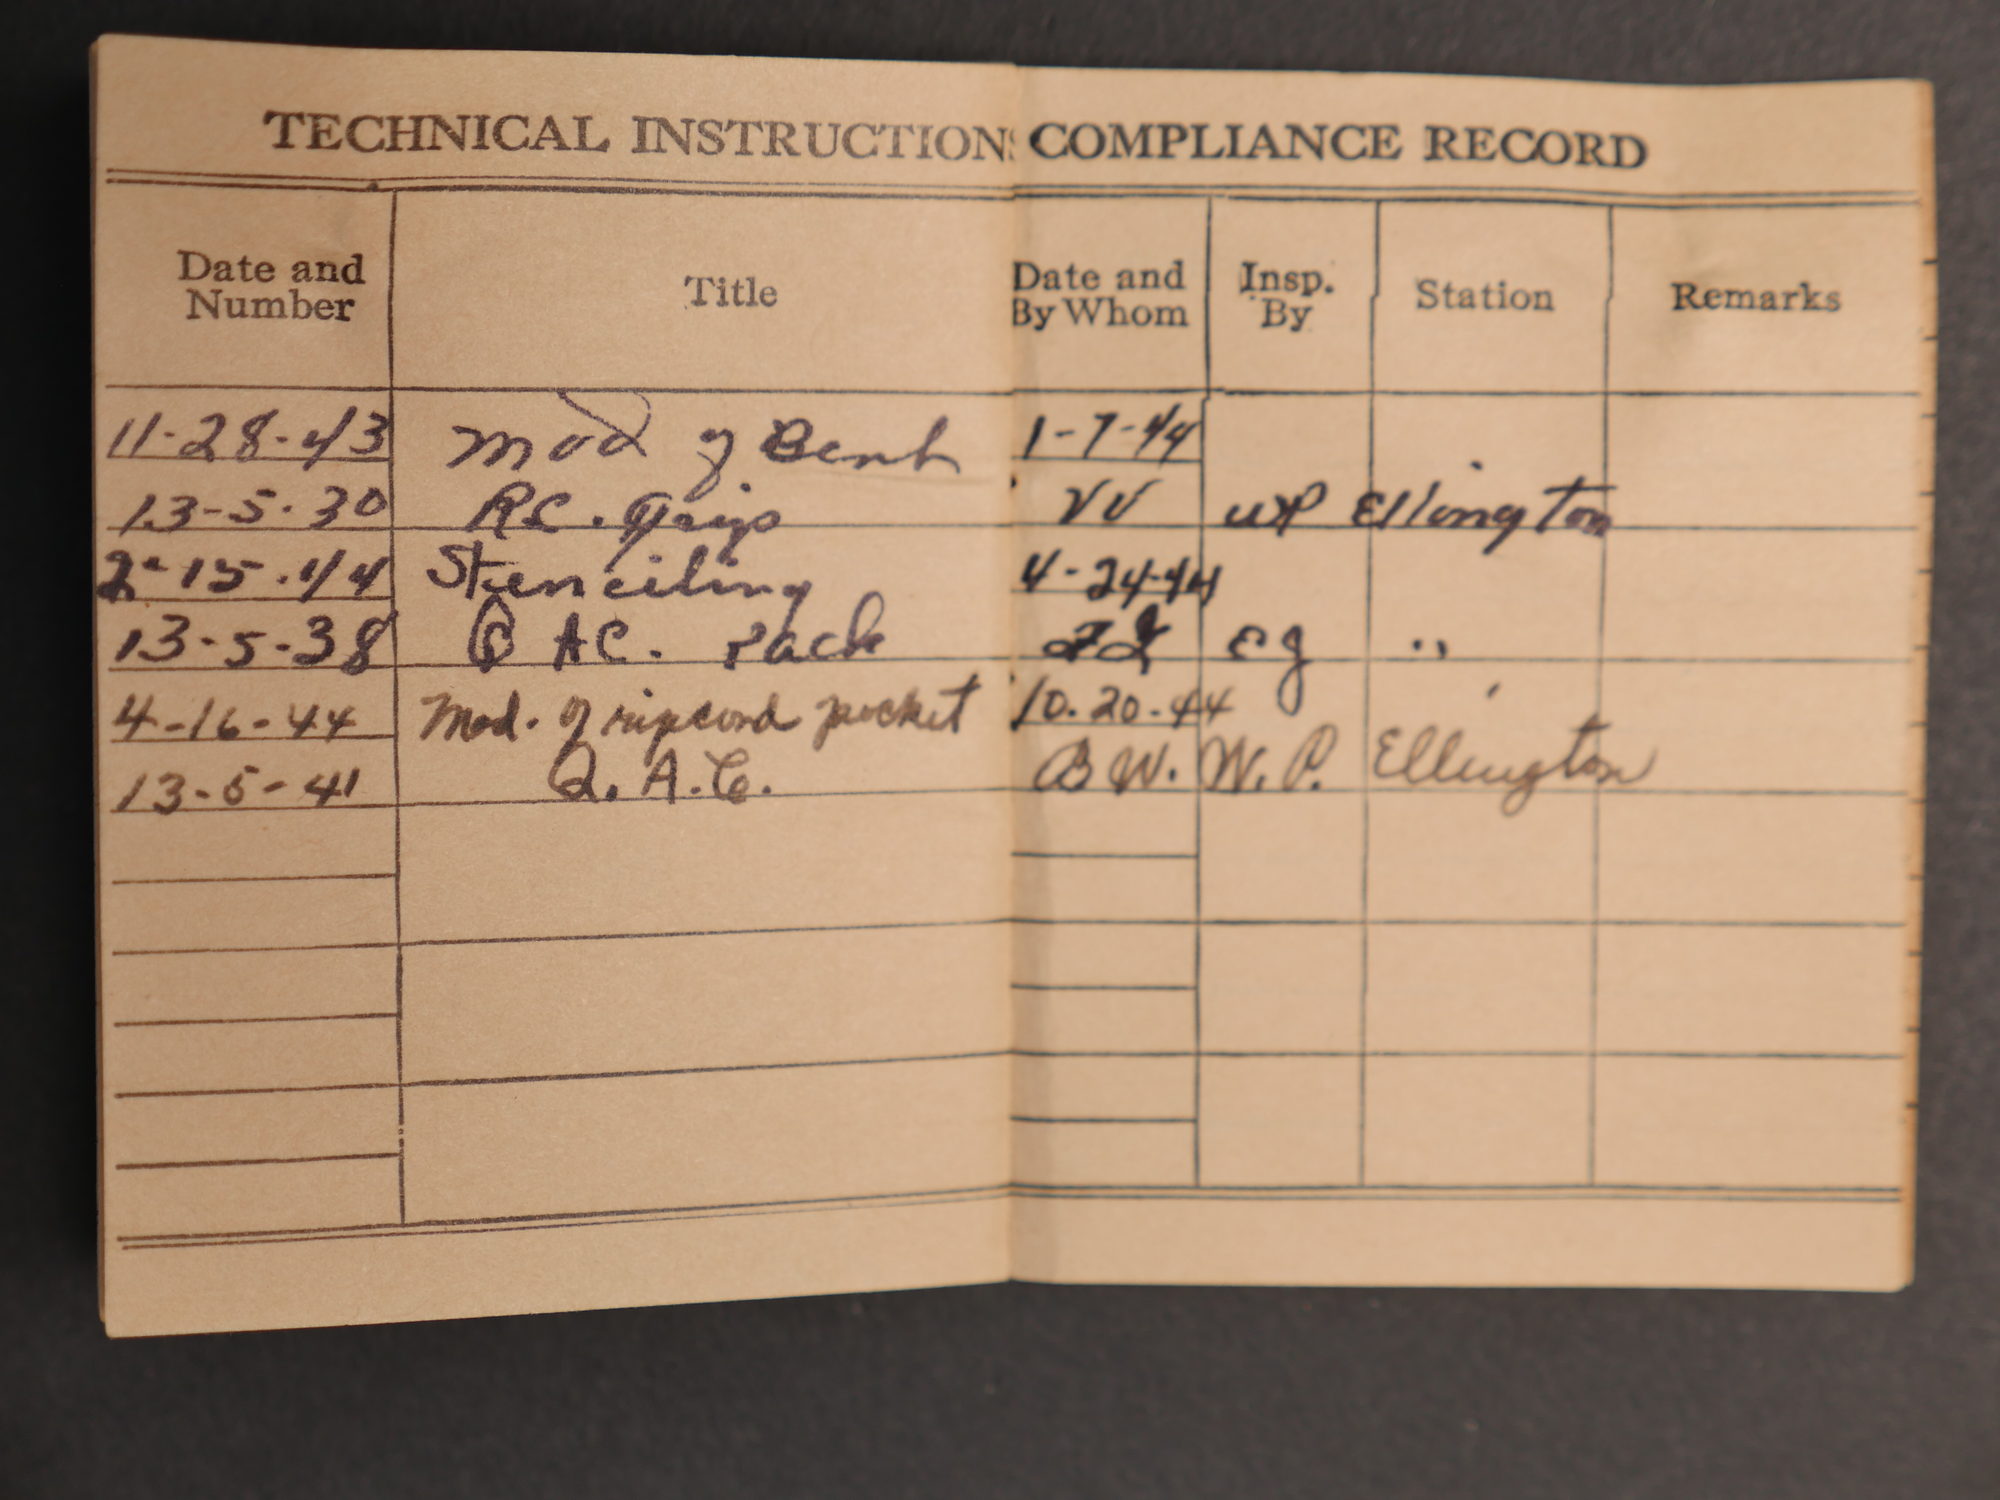 TECHNICAL INSTRUCTIONS COMPLIANCE RECORD
Date and Number Title Date and By Whom Insp. By Station Remarks
11-28-43 Mod of Bent 1-7-44
13-5-30 R.C. Grips VV WP Ellington
2-15-44 Stenciling 4-24-44
13-5-38 Q AC. Pack eg "
4-16-44 Mod. of ripcord pocket 10.20.44
13-5-41 Q.A.C. B W. W.P. Ellington